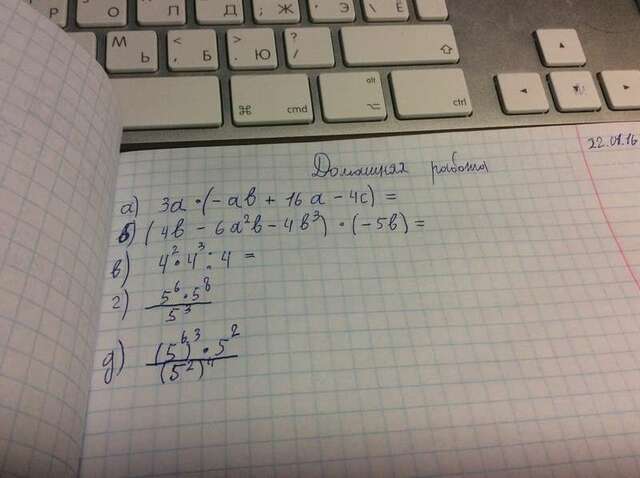 О Л Д Ж Э Ё
М Ь < , Б > . Ю ? /
⌘ cmd alt ⌥ ctrl
22.01.16
Домашняя работа
а) 3a · (-ab + 16a - 4c) =
б) (4b - 6a²b - 4b³) · (-5b) =
в) 4² · 4³ : 4 =
г) 5⁶ · 5⁸
5³
д) (5⁶)³ · 5²
(5²)⁴